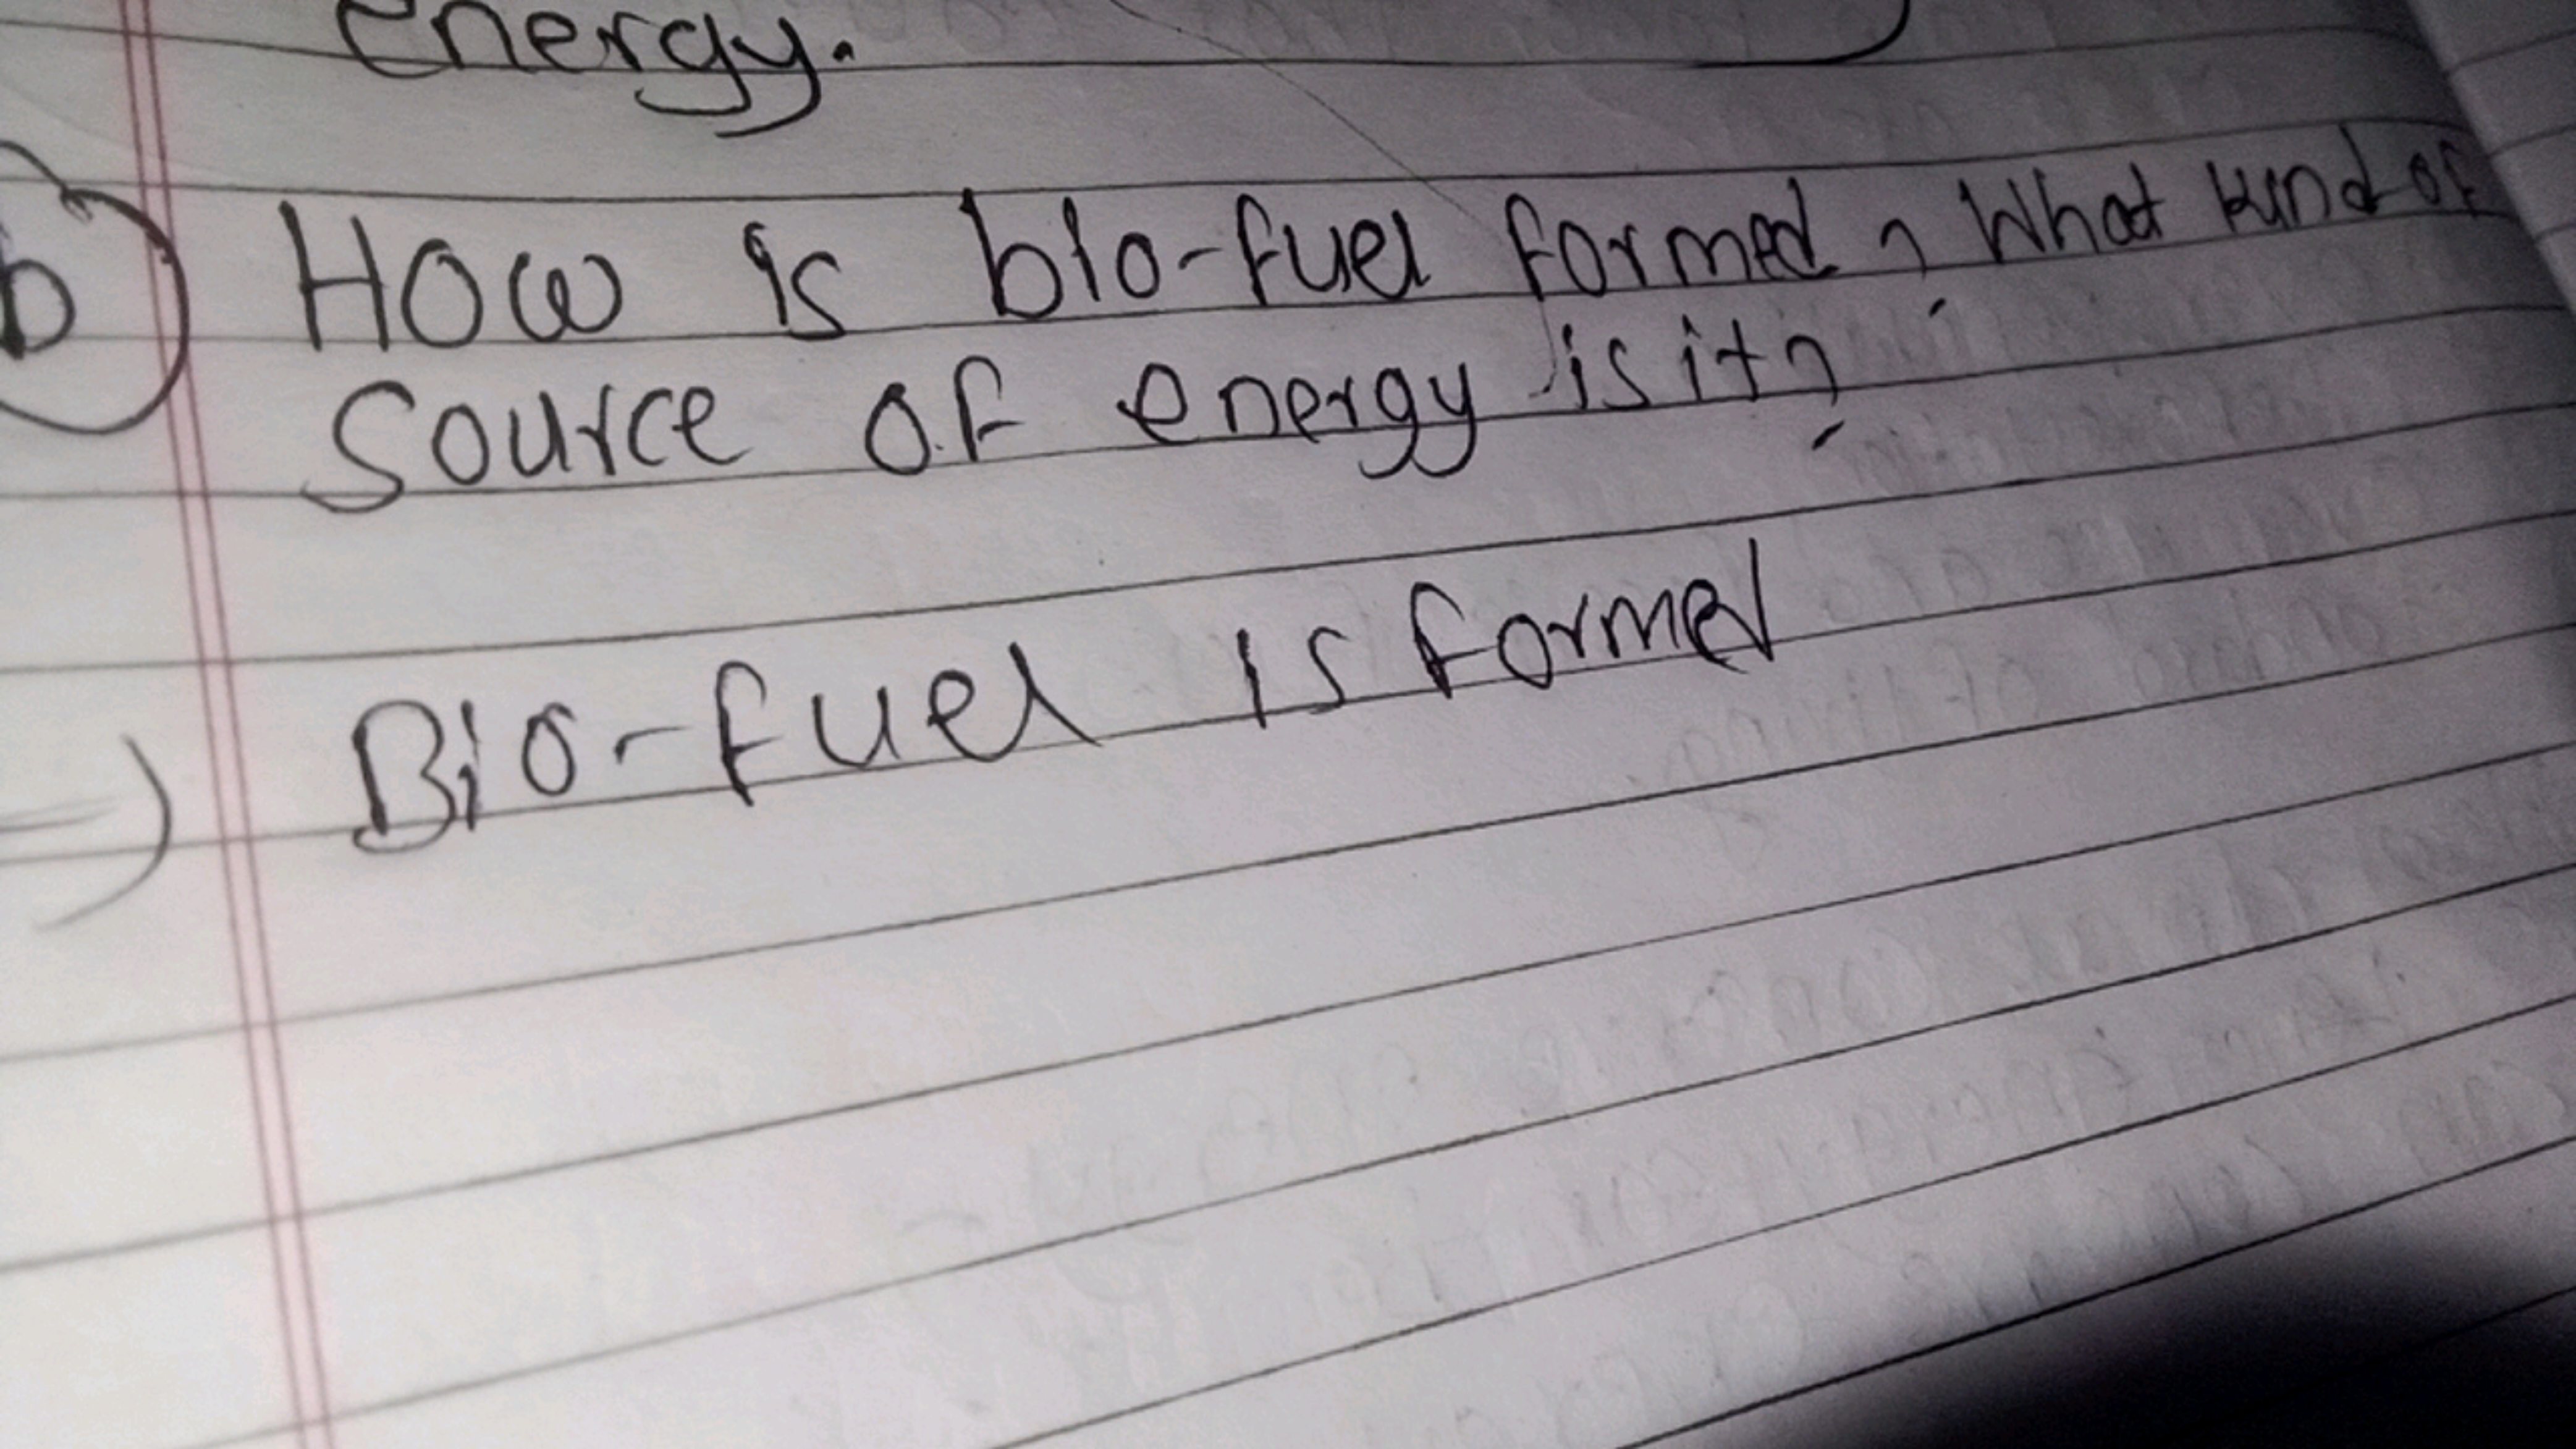 energy.
b) How is bio-fuel formed? What kind of
source of energy is it?
=) Bio-fuel is formed